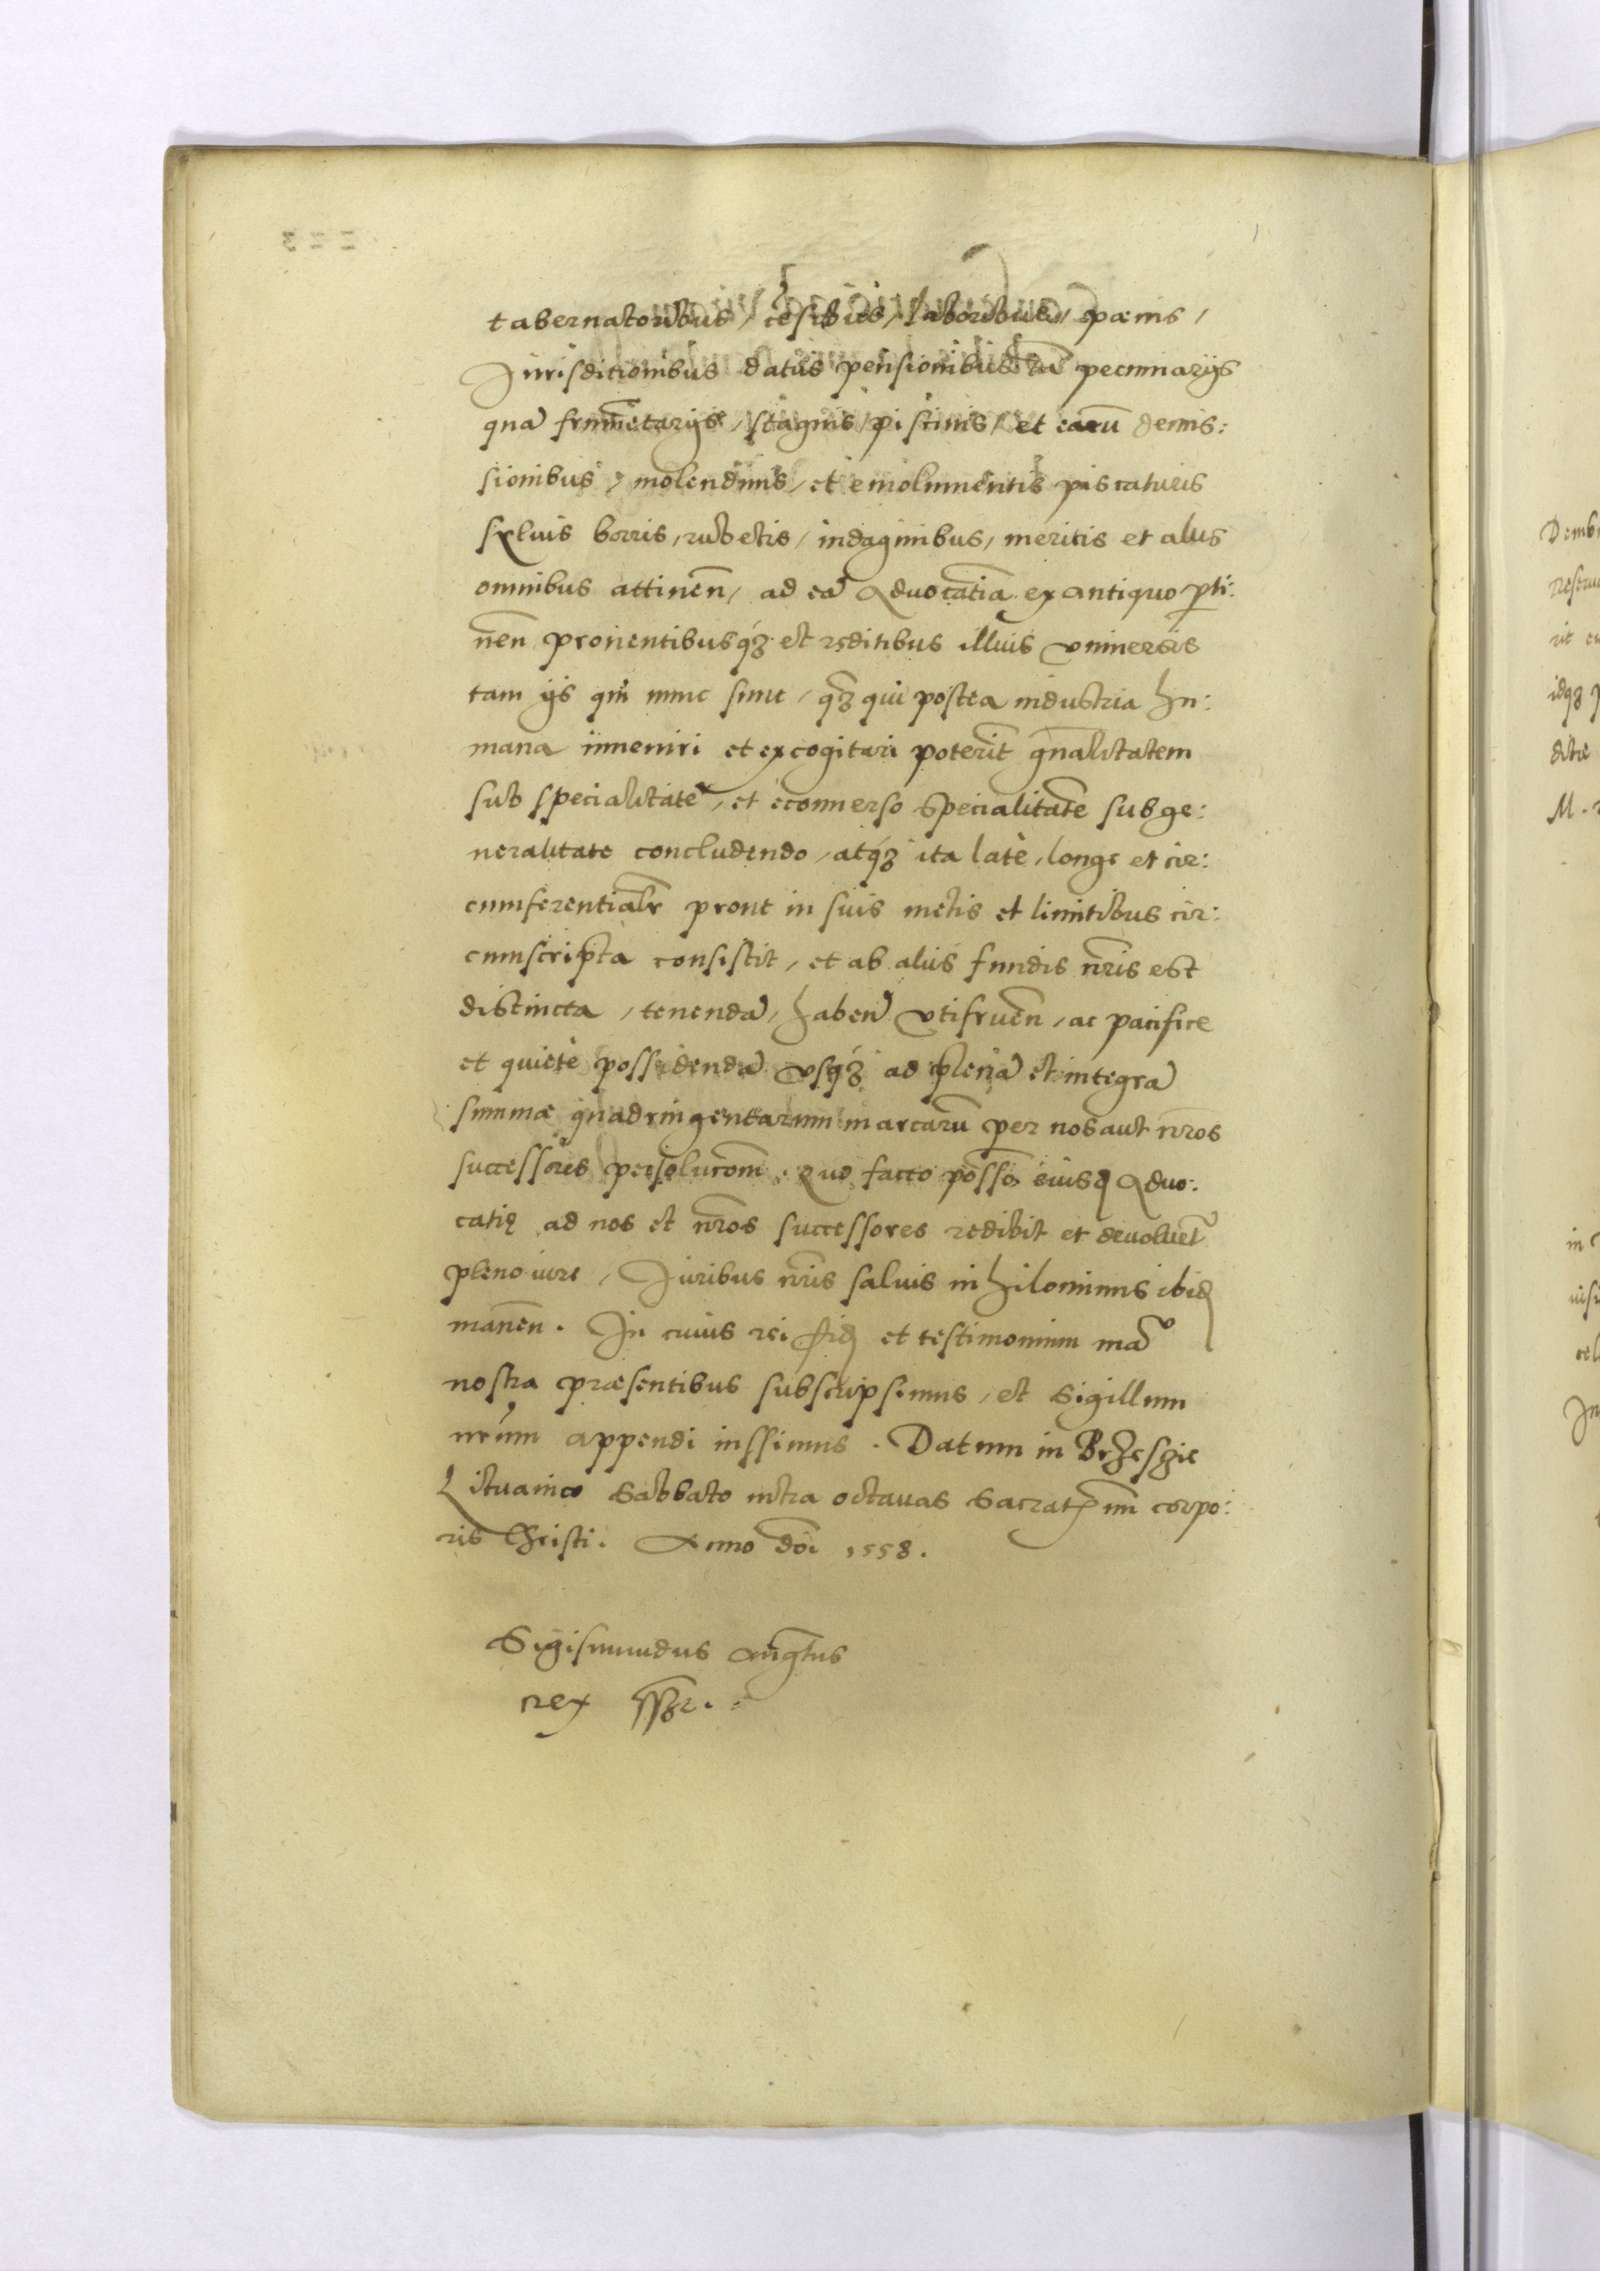 tabernatoribus, cēsibus, laboribus, pænis,
Jurisditionibus datijs pensionibus tā pecuniarijs
quā frumētarijs, stagnis, piscinis, et earū demis:
sionibus, molendinis, et emolumentis piscaturis
sylvis borris, rubetis, indaginibus, mericis et alijs
omnibus attinen̄, ad eā Aduocatiā ex antiquo p̱ti:
nen̄ prouentibusq́ȝ et reditibus illius vniuersis
tam ijs qui nunc sunt, qȝ qui postea industria hu:
mana inueniri et excogitari poterit gn̄alitatem
sub specialitatē, et econuerso specialitatē sub ge:
neralitate concludendo, atq́ȝ ita latè, longe et cir:
cumferentialr̄ prout in suis metis et limitibus cir:
cumscripta consistit, et ab alijs fundis nr̄is est
distincta, tenendā, habenā vtifruen̄, ac pacifice
et quietè possidendā vsq́ȝ ad plenā et integrā
summæ quadringentarum marcarū per nos aut nr̄os
successores persolucom̄. Quo facto posso eiusd Aduo:
catię ad nos et nr̄os successores redibit et deuoluet᷑
pleno iure, Juribus nr̄is saluis nihilominus ibid
manen̄. In cuius rei fid et testimonium manū
nostra præsentibus subscripsimus, et Sigillum
nr̄um appendi iussimus. Datum in Brzeszie
Lituanico Sabbato intra octauas Sacratissimi corpo:
ris Christi. Anno dōi 1558.
Sigismundus Augtus
rex ssȝr.